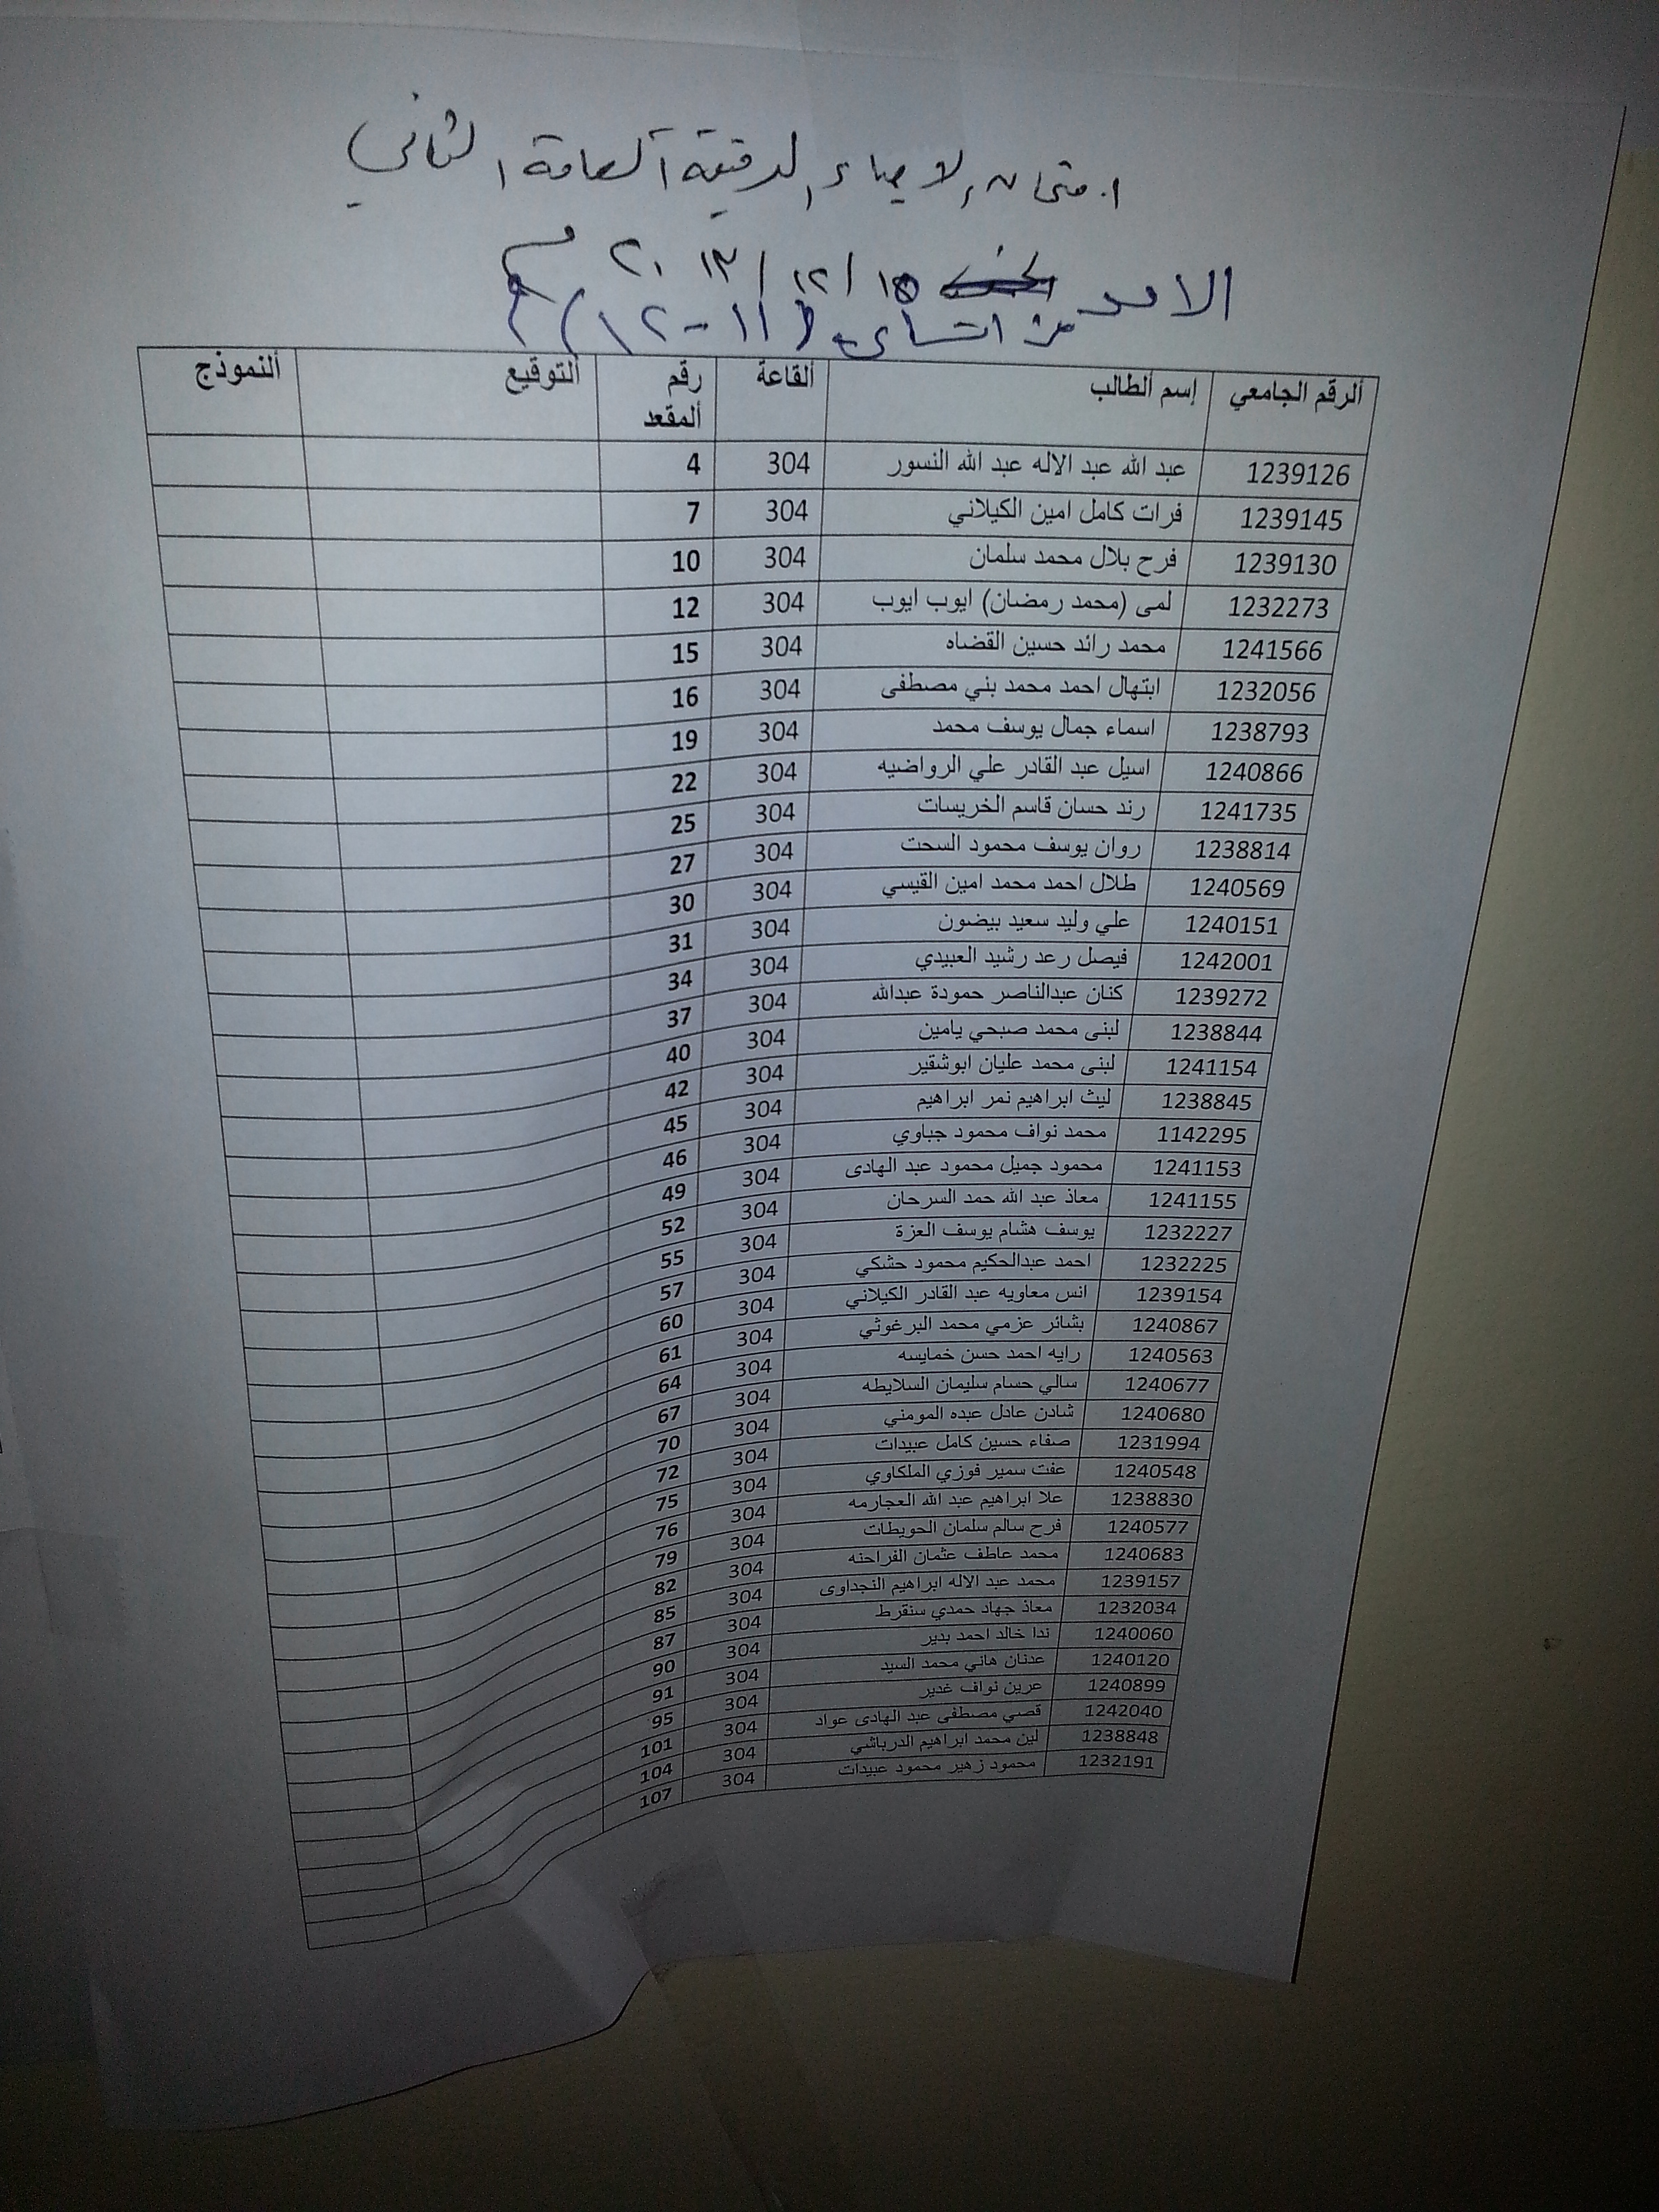 امتحان الاحياء الدقيقة العامة الثاني
الاحد ١٥ / ١٢ / ٢٠١٣ م
من الساعة (١١ - ١٢)
ألرقم الجامعي إسم ألطالب ألقاعة رقم ألمقعد ألتوقيع ألنموذج
1239126 عبد الله عبد الاله عبد الله النسور 304 4
1239145 فرات كامل امين الكيلاني 304 7
1239130 فرح بلال محمد سلمان 304 10
1232273 لمى (محمد رمضان) ايوب ايوب 304 12
1241566 محمد رائد حسين القضاه 304 15
1232056 ابتهال احمد محمد بني مصطفى 304 16
1238793 اسماء جمال يوسف محمد 304 19
1240866 اسيل عبد القادر علي الرواضيه 304 22
1241735 رند حسان قاسم الخريسات 304 25
1238814 روان يوسف محمود السحت 304 27
1240569 طلال احمد محمد امين القيسي 304 30
1240151 علي وليد سعيد بيضون 304 31
1242001 فيصل رعد رشيد العبيدي 304 34
1239272 كنان عبدالناصر حمودة عبدالله 304 37
1238844 لبنى محمد صبحي يامين 304 40
1241154 لبنى محمد عليان ابوشقير 304 42
1238845 ليث ابراهيم نمر ابراهيم 304 45
1142295 محمد نواف محمود جباوي 304 46
1241153 محمود جميل محمود عبد الهادى 304 49
1241155 معاذ عبد الله حمد السرحان 304 52
1232227 يوسف هشام يوسف العزة 304 55
1232225 احمد عبدالحكيم محمود حشكي 304 57
1239154 انس معاويه عبد القادر الكيلاني 304 60
1240867 بشائر عزمي محمد البرغوثي 304 61
1240563 رايه احمد حسن خمايسه 304 64
1240677 سالي حسام سليمان السلايطه 304 67
1240680 شادن عادل عبده المومني 304 70
1231994 صفاء حسين كامل عبيدات 304 72
1240548 عفت سمير فوزي الملكاوي 304 75
1238830 علا ابراهيم عبد الله العجارمه 304 76
1240577 فرح سالم سلمان الحويطات 304 79
1240683 محمد عاطف عثمان الفراحنه 304 82
1239157 محمد عبد الاله ابراهيم النجداوى 304 85
1232034 معاذ جهاد حمدي سنقرط 304 87
1240060 ندا خالد احمد بدير 304 90
1240120 عدنان هاني محمد السيد 304 91
1240899 عرين نواف غدير 304 95
1242040 قصي مصطفى عبد الهادى عواد 304 101
1238848 لين محمد ابراهيم الدرباشي 304 104
1232191 محمود زهير محمود عبيدات 304 107